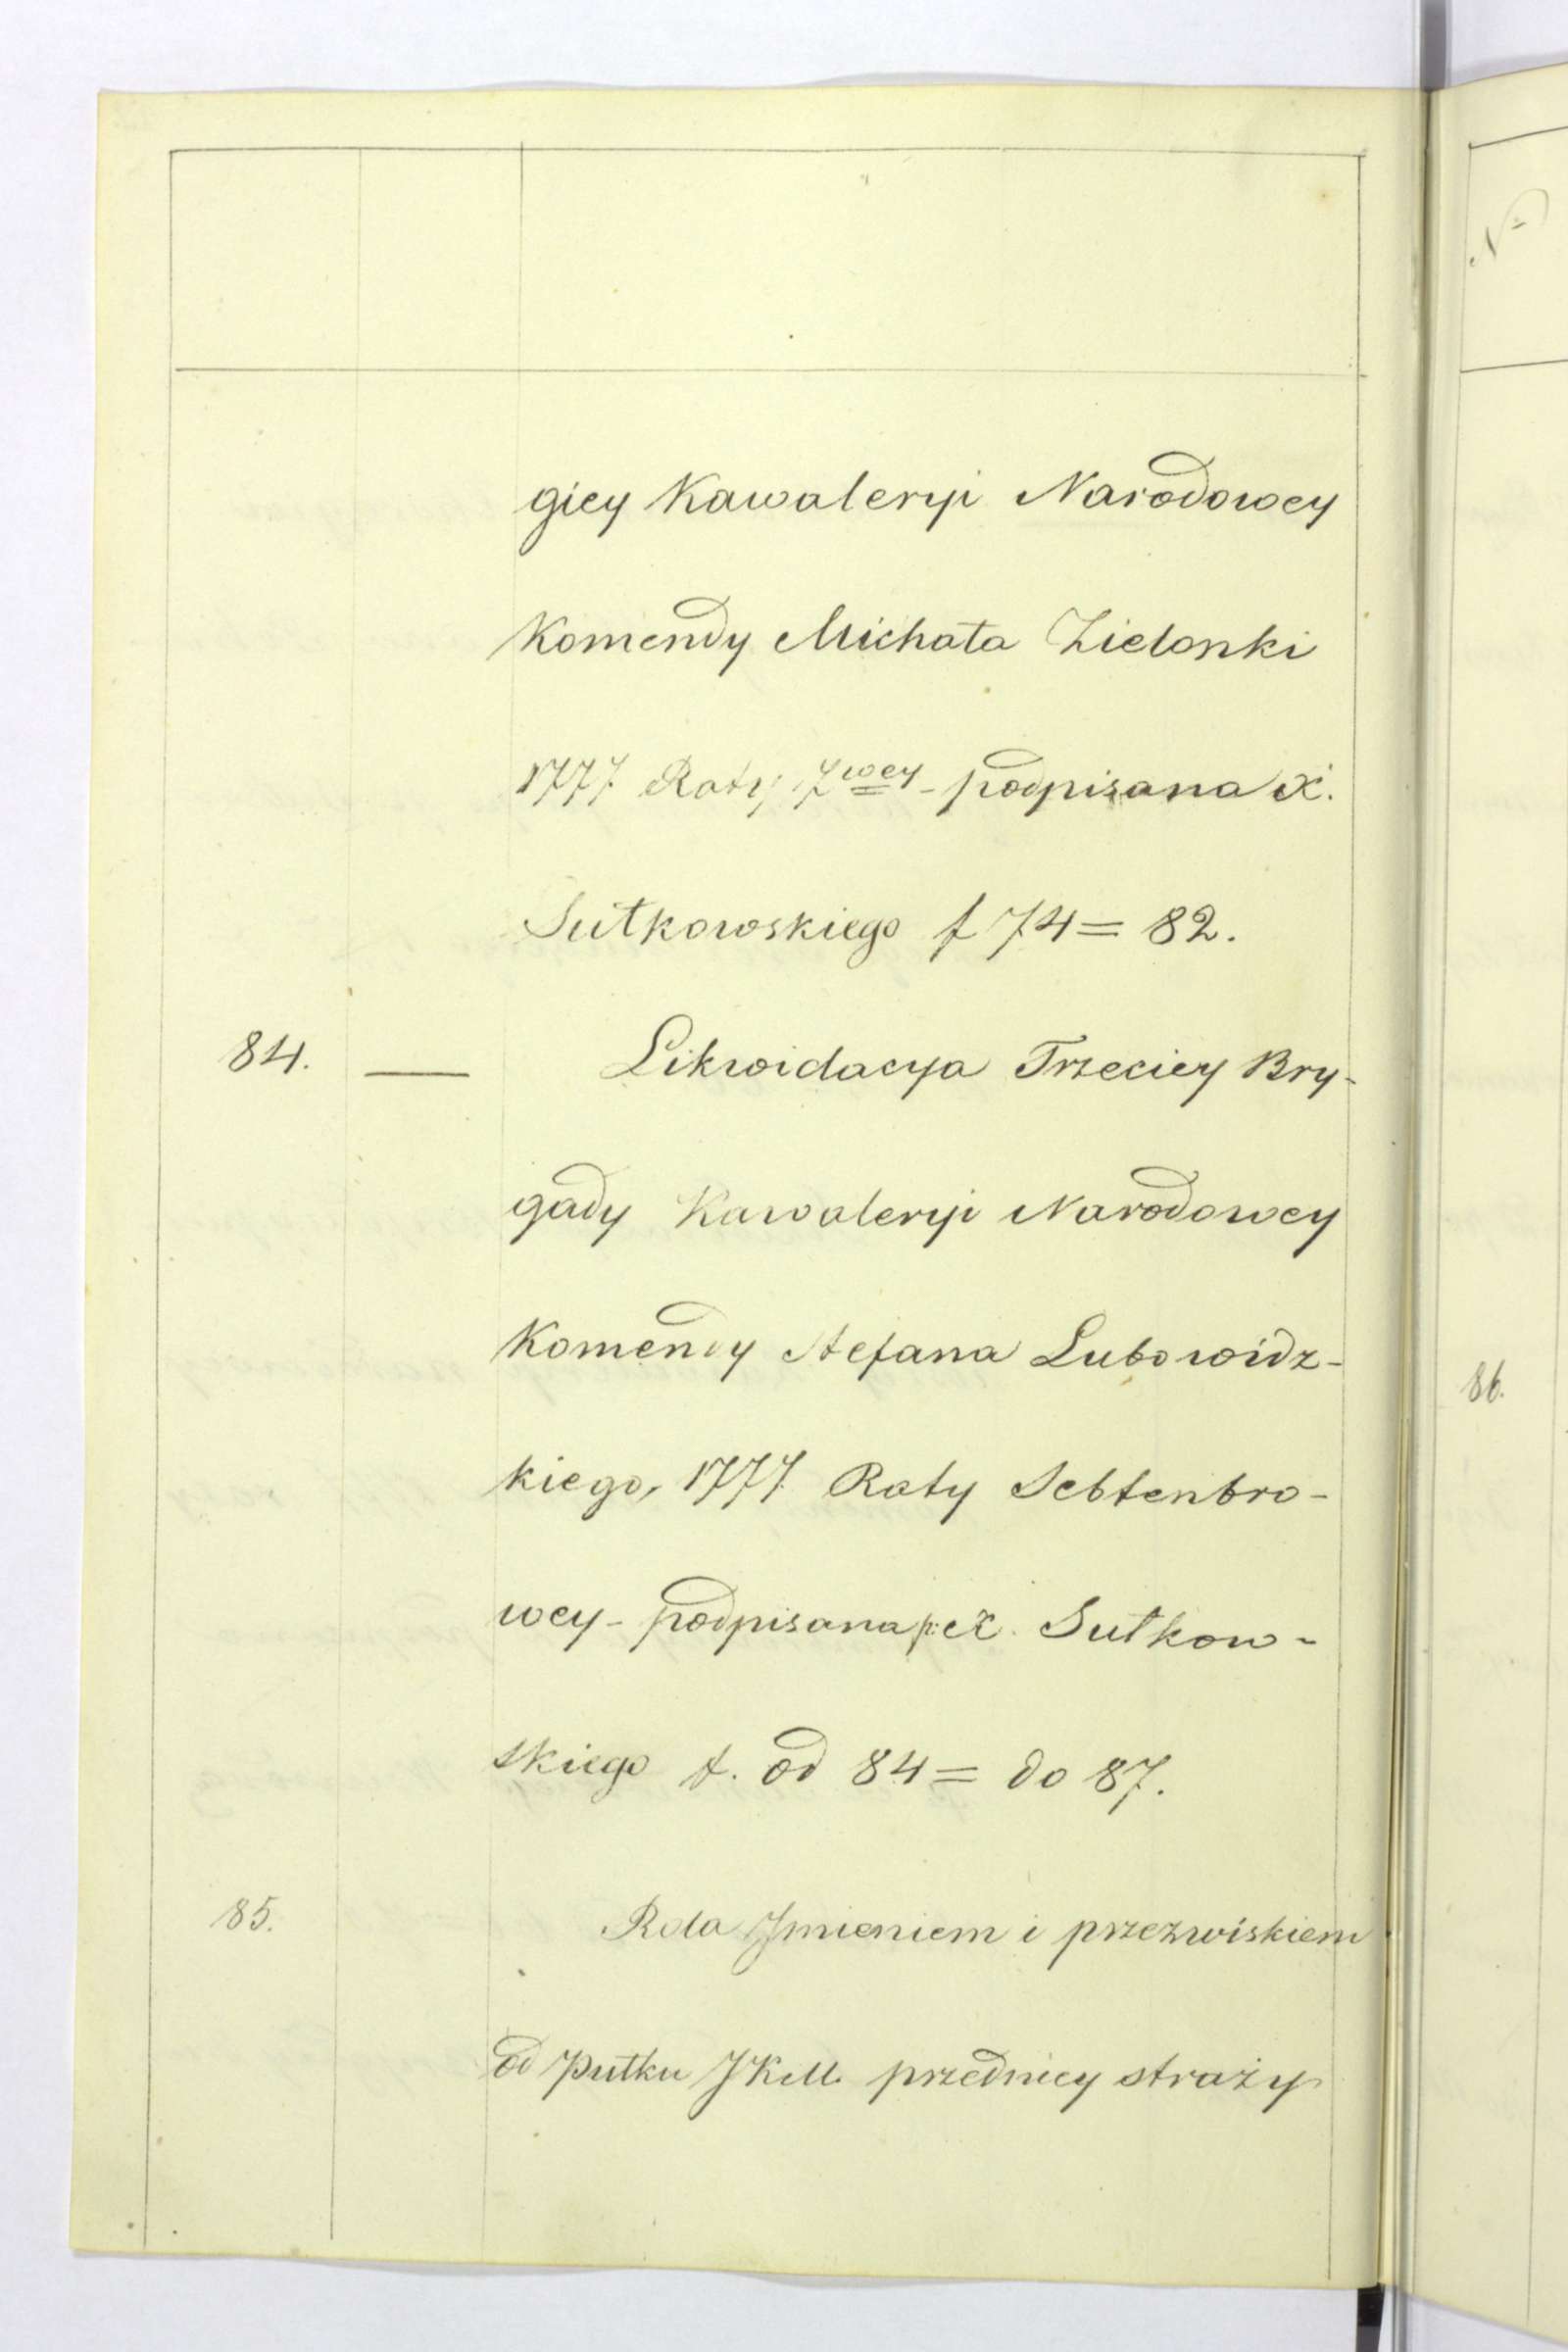 giey Kawaleryi Narodowey
Komendy Michała Zielonki
1777 Raty 7wey - podpisana X.
Sułkowskiego f 74 = 82.
84. — Likwidacya Trzeciey Bry-
gady Kawaleryi Narodowey
Komendy Stefana Lubowidz-
kiego, 1777 Raty Sebtenbro-
wey - podpisana p: X. Sułkow-
skiego f. od 84 = do 87.
85. Rola Jmieniem i przezwiskiem
od Pułku JKM. przedniey straży
86.